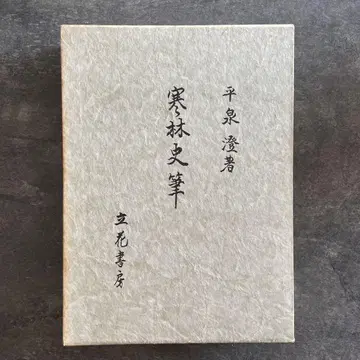 平泉澄著
寒林史筆
立花書房